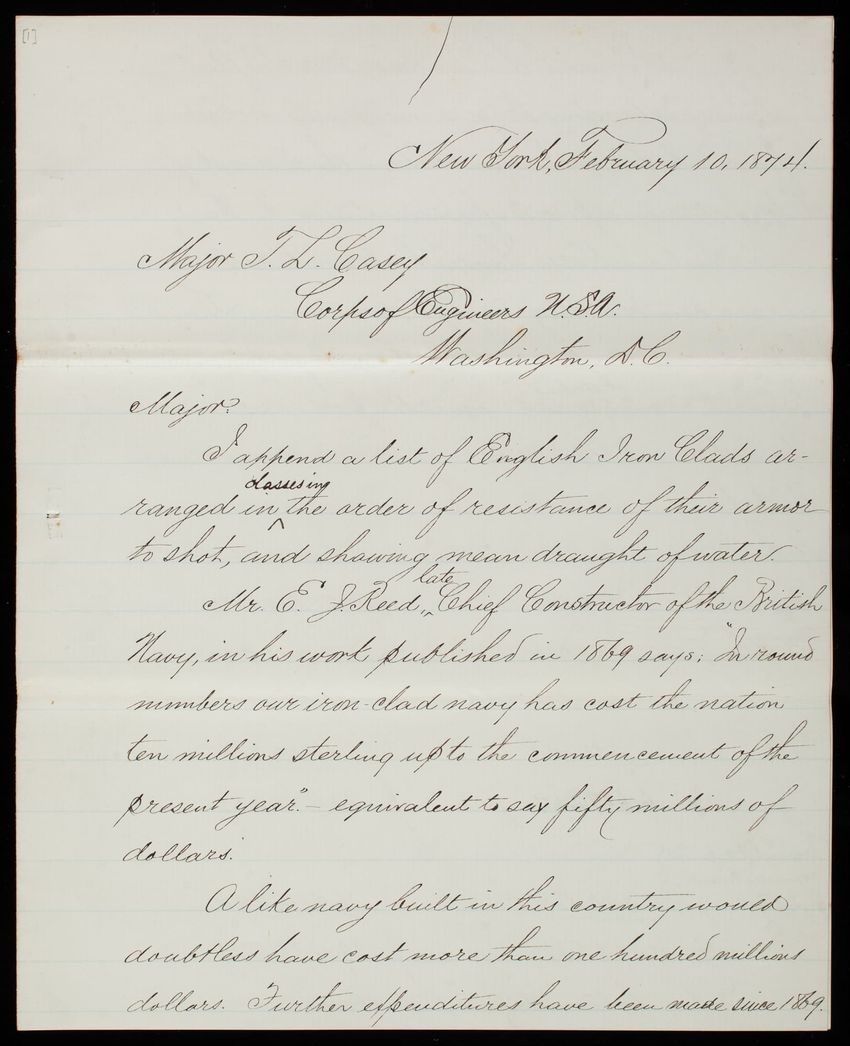 [1]
New York, February 10, 1874.
Major T. L. Casey
Corps of Engineers U.S.A.
Washington, D.C.
Major:
I append a list of English Iron Clads ar-
classes in
ranged in the order of resistance of their armor
to shot, and showing mean draught of water.
late
Mr. E. J. Reed, Chief Constructor of the British
Navy, in his work published in 1869 says; "In round
numbers our iron-clad navy has cost the nation
ten millions sterling up to the commencement of the
present year." - equivalent to say fifty millions of
dollars.
A like navy built in this country would
doubtless have cost more than one hundred millions
dollars. Further expenditures have been made since 1869.